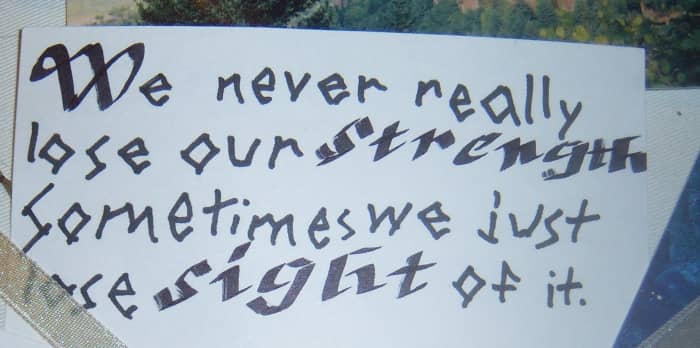 We never really
lose our strength
Sometimes we just
lose sight of it.